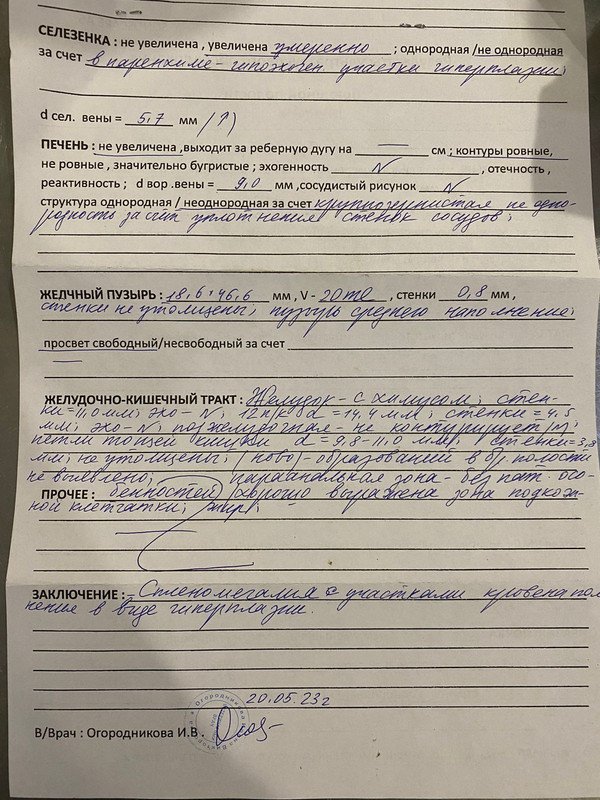 СЕЛЕЗЕНКА : не увеличена , увеличена умеренно ; однородная /не однородная
за счет в паренхиме - гипоэхоген. участки гиперплазии;
d сел. вены = 5,7 мм (↑)
ПЕЧЕНЬ : не увеличена ,выходит за реберную дугу на — см ; контуры ровные,
не ровные , значительно бугристые ; эхогенность N , отечность ,
реактивность ; d вор .вены = 9,0 мм ,сосудистый рисунок N
структура однородная / неоднородная за счет крупнозернистая не одно-
родность за счёт уплотнения стенок сосудов;
ЖЕЛЧНЫЙ ПУЗЫРЬ : 18,6 × 46,6 мм , V - 20 ml , стенки 0,8 мм ,
стенки не утолщены; пузырь среднего наполнения;
просвет свободный/несвободный за счет
—
ЖЕЛУДОЧНО-КИШЕЧНЫЙ ТРАКТ : Желудок - с химусом; стен-
ки = 11,0 мм; эхо - N; 12 п/к d = 14,4 мм; стенки = 4,5
мм; эхо - N; поджелудочная - не контурирует;
петли тощей кишки d = 9,8 - 11,0 мм; стенки = 3,8
мм; не утолщены; (ново) - образований в бр. полости
не выявлено; параанальная зона - без пат. осо-
ПРОЧЕЕ : бенностей) хорошо выражена зона подкож-
ной клетчатки; жир;
ЗАКЛЮЧЕНИЕ : - Спленомегалия с участками кровенапол
нения в виде гиперплазии.
20.05.23г
В/Врач : Огородникова И.В .